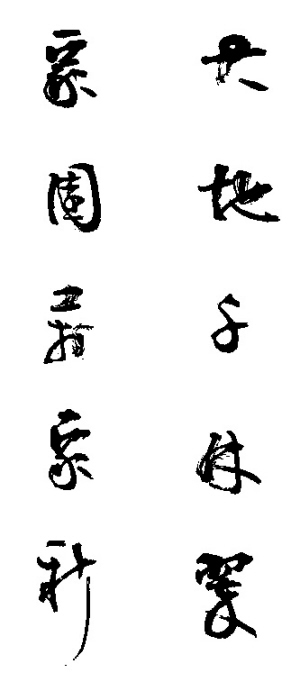 大地千林翠
家園萬象新